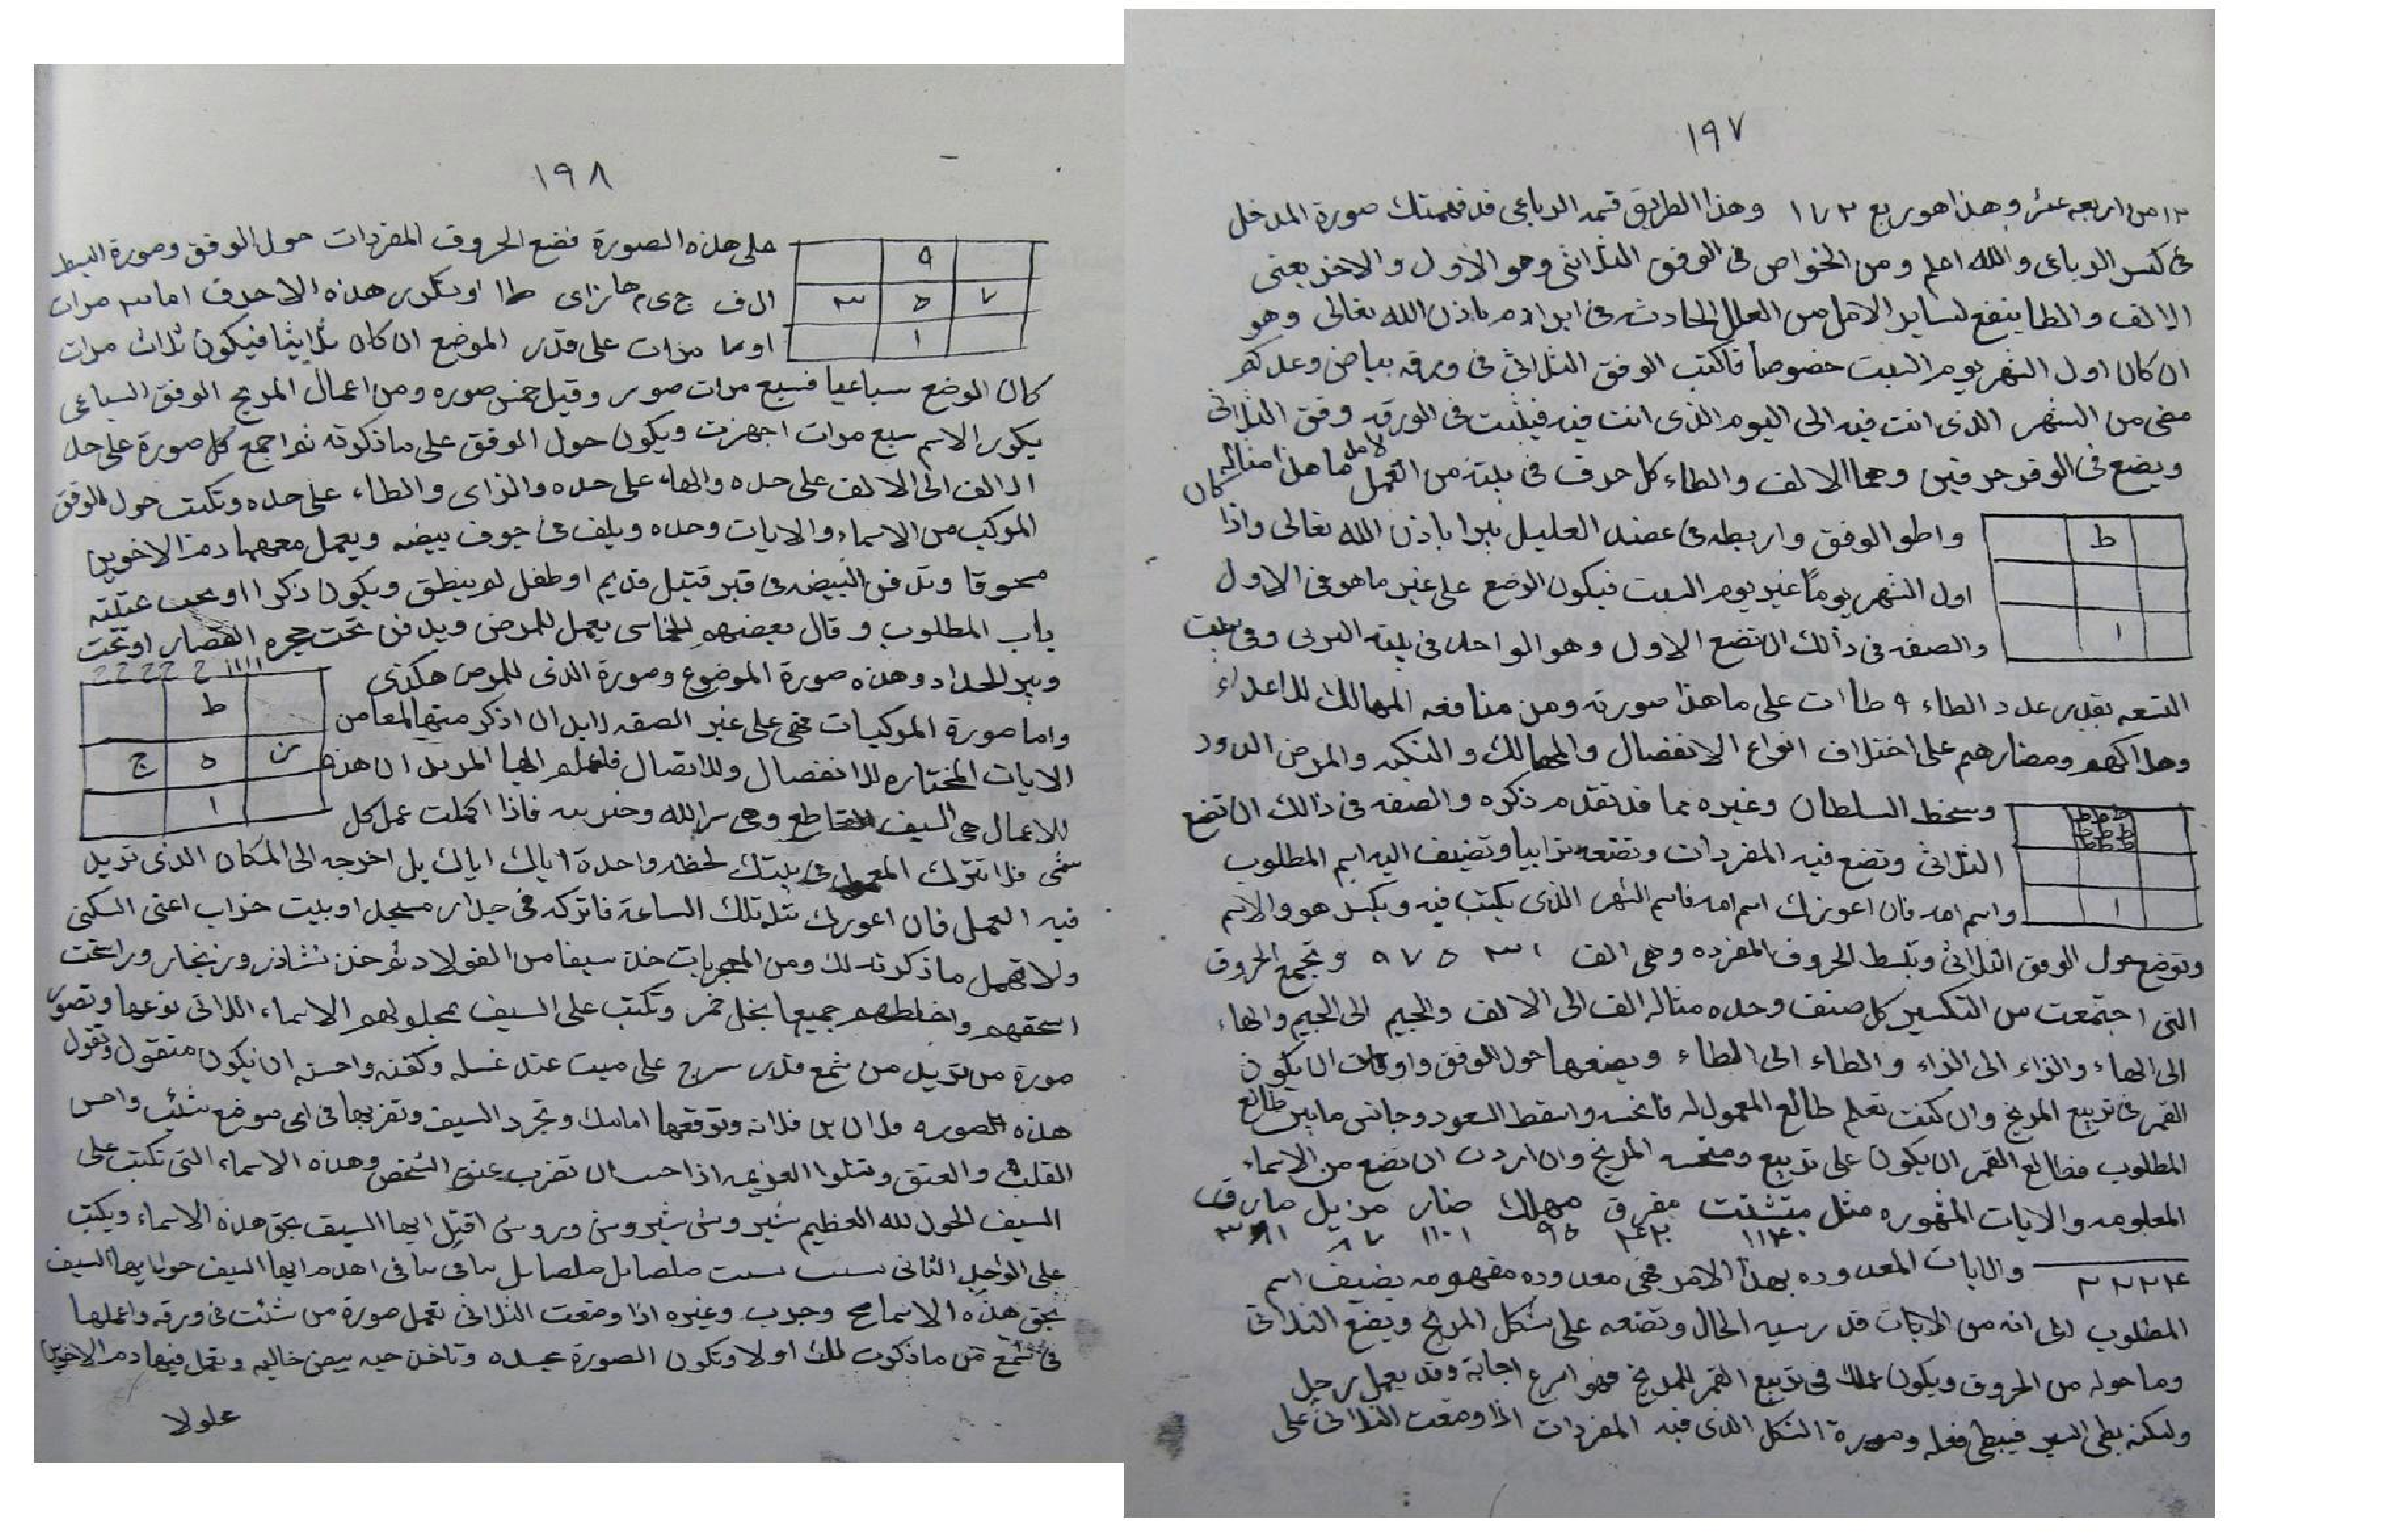 ١٩٧
١٢ من اربعه عشر وهذا هو ربع ١٧٣ وهذا الطريق قتمه الرباعي قد فهمتك صورة المدخل
في كسر الرباعي والله اعلم ومن الخواص في الوفق الثلاثي وهو الاول والاخر يعني
الالف والطا ينفع لساير الامل من العلل الحادثه في ابن ادم باذن الله تعالى وهو
ان كان اول الشهر يوم السبت خصوصا فاكتب الوفق الثلاثي في ورقه بياض وعد كم
مضى من الشهر الذى انت فيه الى اليوم الذى انت فيه فيثبت في الورقه وفق الثلاثي
ويضع في الوفق حرفين وهما الالف والطاء كل حرف في بيته من العمل ما هذا مثاله كان
واطو الوفق واربطه في عضد العليل يبرا باذن الله تعالى واذا
ط
اول الشهر يوماً غير يوم السبت فيكون الوضع على غير ما هو في الاول
والصفه في ذالك ان تضع الاول وهو الواحد في بيته البرى وفي بيت
ا
التسعه بقدر عدد الطاء ٩ طاات على ما هذا صورته ومن منافعه المهالك للاعداء
وهلاكهم ومضارهم على اختلاف انواع الانفصال والمهالك والنكبه والمرض الدود
وسخط السلطان وغيره مما قد تقدم ذكره والصفه في ذالك ان تضع
ططط
ططط
الثلاثي وتضع فيه المفردات وتضعه ترابيا وتضيف اليه اسم المطلوب
واسم امه فان اعوزك اسم امه فاسم الشهر الذى يكتب فيه ويكسر هو والاسم
ا
وتوضع حول الوفق الثلاثي وتبسط الحروف المفرده وهي الف ١ ٣ ٥ ٧ ٩ وتجمع الحروف
التى اجتمعت من التكسير كل صنف وحده مثاله الف الى الالف والجيم الى الجيم والهاء
الى الهاء والزاء الى الزاء والطاء الى الطاء ويضعها حول الوفق واوقات ان يكون
القمر في تربيع المريخ وان كنت تعلم طالع المعمول له فانحسه واسقط السعود وجانس ما بين طالع
المطلوب فطالع القمر ان يكون على تربيع ومنحسه المريخ وان اردت ان تضع من الاسماء
المعلومه والايات المشهوره مثل متشتت مفرق مهلك ضار مزيل مارق
٩٥ ١١٠١ ٨٧ ٣٤١
والايات المعدوده بهذا الامر فهي معدوده مفهومه يضيف اسم
المطلوب الى انه من الايات قد رسيه الحال وتضعه على شكل المريخ ويضع الثلاثي
وما حوله من الحروف ويكون عملك في تربيع القمر للمريخ فهو اسرع اجابة وقد يعمل برحل
ولكنه بطى السير فيبطى فعله وصورة الشكل الذى فيه المفردات اذا وضعت الثلاثي على
١٩٨
على هذه الصورة فضع الحروف المفردات حول الوفق وصورة البسط
٩
ال ف ج ى م ها زاى طا اوتكرر هذه الاحرف اما ٣ مرات
٧ ٥ ٣
اوما مرات على قدر الموضع ان كان ثلاثيا فيكون ثلاث مرات
١
كان الوضع سباعيا فسبع مرات صور وقيل خمس صوره ومن اعمال المريخ الوفق السباعى
يكور الاسم سبع مرات اجهزت ويكون حول الوفق على ما ذكرته ثم اجمع كل صورة على حده
الالف الى الالف على حده والهاء على حده والزاى والطاء على حده وتكتب حول الوفق
الموكب من الاسماء والايات وحده ويلف في جوف بيضه ويعمل معهما دم الاخوين
محوقا وتدفن البيضه في قبر قتيل قديم او طفل لم ينطق ويكون ذكرا او تحت عتبته
باب المطلوب وقال بعضهم للخاسى يعمل للمرض ويدفن تحت حجره القصار او تحت
وبير الحداد وهذه صورة الموضوع وصورة الذى للمرض هكذى
ط
واما صورة الموكبات فهي على غير الصفه لابد ان اذكر منها لمعا من
ز ٥ ج
الايات المختاره للانفصال وللاتصال فاعلم ايها المريد ان هذه
ا
للاعمال هي السيف القاطع وهي سر الله وحنربه فاذا اكملت عمل كل
شى فلا تترك المعمول في بيتك لحظه واحدة اياك اياك بل اخرجه الى المكان الذى تريد
فيه العمل فان اعورك مثل تلك الساعة فاتركه في جدار مسجد او بيت خراب اعنى السكنى
ولا تهمل ما ذكرته لك ومن المجربات خذ سيفا من الفولاد ثم خذ نشادر وزنجار وراسخت
اسحقهم واخلطهم جميعا بخل خمر وتكتب على السيف بمحلولهم الاسماء اللاتى نوعها وتصور
صورة من تريد من شمع قدر سرج على ميت عند غسله وكفنه واحسنه ان يكون منقول وتقول
هذه الصوره فلان بن فلانه وتوقعها امامك وتجرد السيف وتضربها في اى موضع شئت واحسن
القلب والعنق وتتلوا العزيمه اذا احسن ان تضرب عنق الشخص وهذه الاسماء التى تكتب على
السيف الحول لله العظيم شير وشى شيروشى وروشى اقتل ايها السيف بحق هذه الاسماء ويكتب
على الواجد الثانى سبب سبت ملصابل ملصابل سافى سافى اهدم ايها السيف حول ايها السيف
بحق هذه الاسما صح وجرب وغيره اذا وضعت الثلاثي تعمل صورة من شئت في ورقه واعملها
في شمع من ما ذكرت لك اولا وتكون الصورة عبده وتاخذ حبه بيض خاليه وتعمل فيها دم الاخوين
علولا